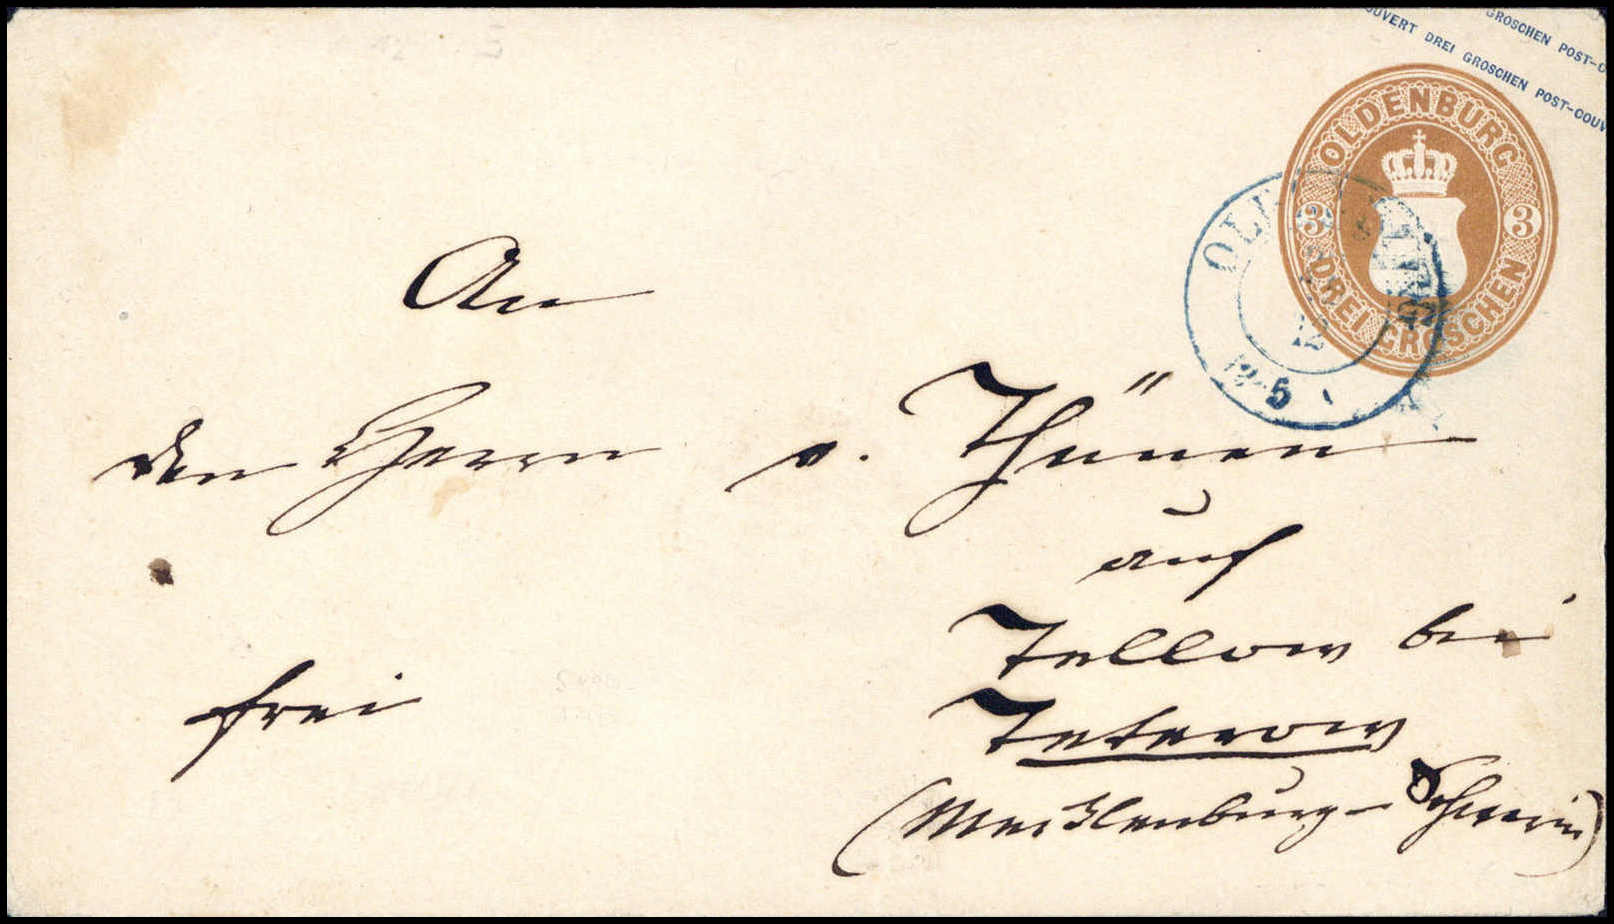 GROSCHEN POST-C
OUVERT DREI GROSCHEN POST-COUV
OLDENBURG
3 3
DREI GROSCHEN
12
5
An
den Herrn v. Thünen
auf
Tellow bei
frei
Teterow
(Mecklenburg-Schwerin)